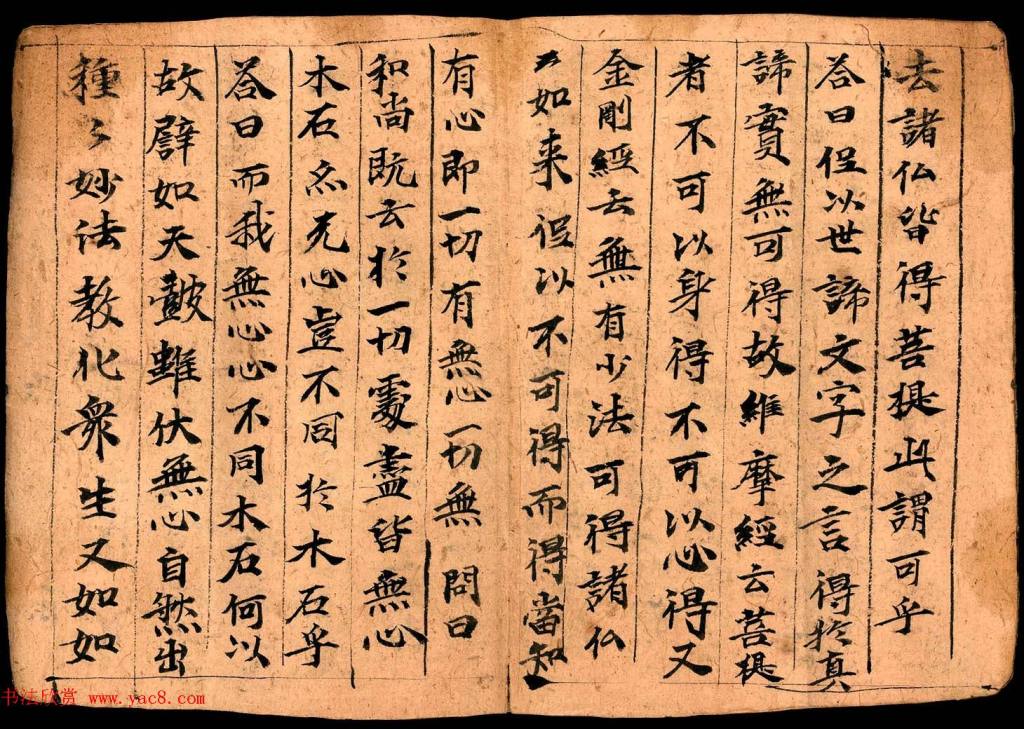 去諸仏皆得菩提此謂可乎
荅曰但以世諦文字之言得扵真
諦實無可得故維摩經云菩提
者不可以身得不可以心得又
金剛經云無有少法可得諸仏
如来但以不可得而得當知
有心即一切有無心一切無問曰
和尚既云扵一切處盡皆無心
木石亦无心豈不同扵木石乎
荅曰而我無心心不同木石何以
故譬如天鼓雖伏無心自然出
種々妙法教化衆生又如如
书法欣赏 www.yac8.com